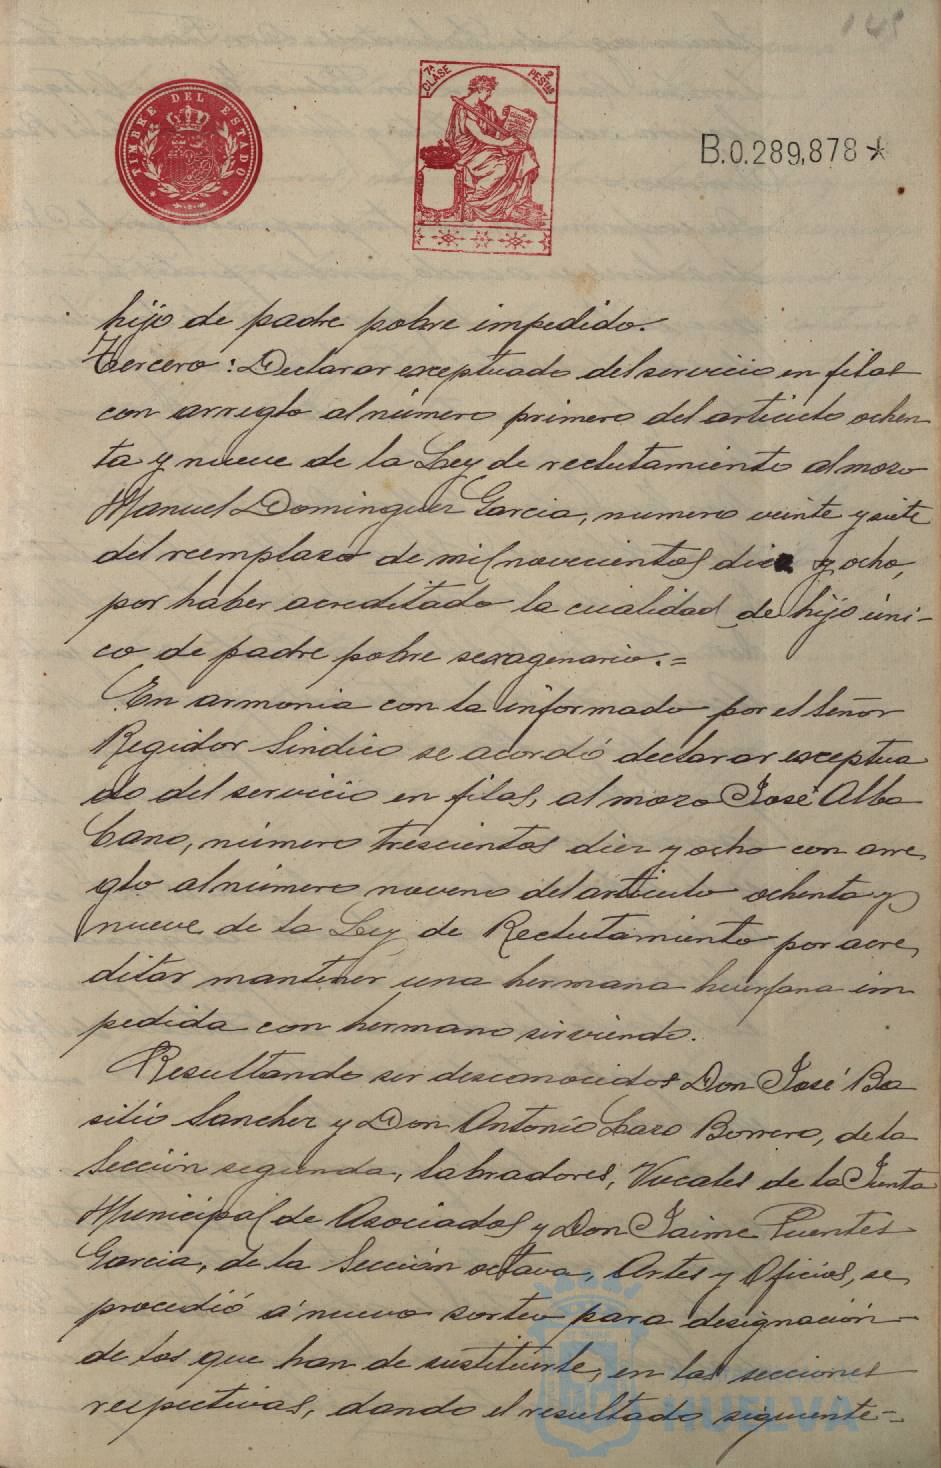 145
TIMBRE DEL ESTADO
7ª CLASE
2 PESTAS
B.0.289,878*
hijo de padre pobre impedido.
Tercero: Declarar exceptuado del servicio en filas
con arreglo al número primero del articulo ochen
ta y nueve de la Ley de reclutamiento al mozo
Manuel Dominguez Garcia, numero veinte y siete
del reemplazo de mil novecientos diez y ocho,
por haber acreditado la cualidad de hijo úni-
co de padre pobre sexagenario.=
En armonia con lo informado por el Señor
Regidor Sindico se acordó declarar exceptua
do del servicio en filas, al mozo José Alba
Cano, número trescientos diez y ocho con arre
glo al número noveno del articulo ochenta y
nueve de la Ley de Reclutamiento por acre
ditar mantener una hermana huerfana im
pedida con hermano sirviendo.
Resultando ser desconocidos Don José Ba
silio Sanchez y Don Antonio Lazo Borrero, de la
Sección segunda, labradores, Vocales de la Junta
Municipal de Asociados y Don Jaime Puentes
Garcia, de la Sección octava, Artes y Oficios, se
procedió á nuevo sorteo para designación
de los que han de sustituirle, en las secciones
respectivas, dando el resultado siguiente=
HUELVA